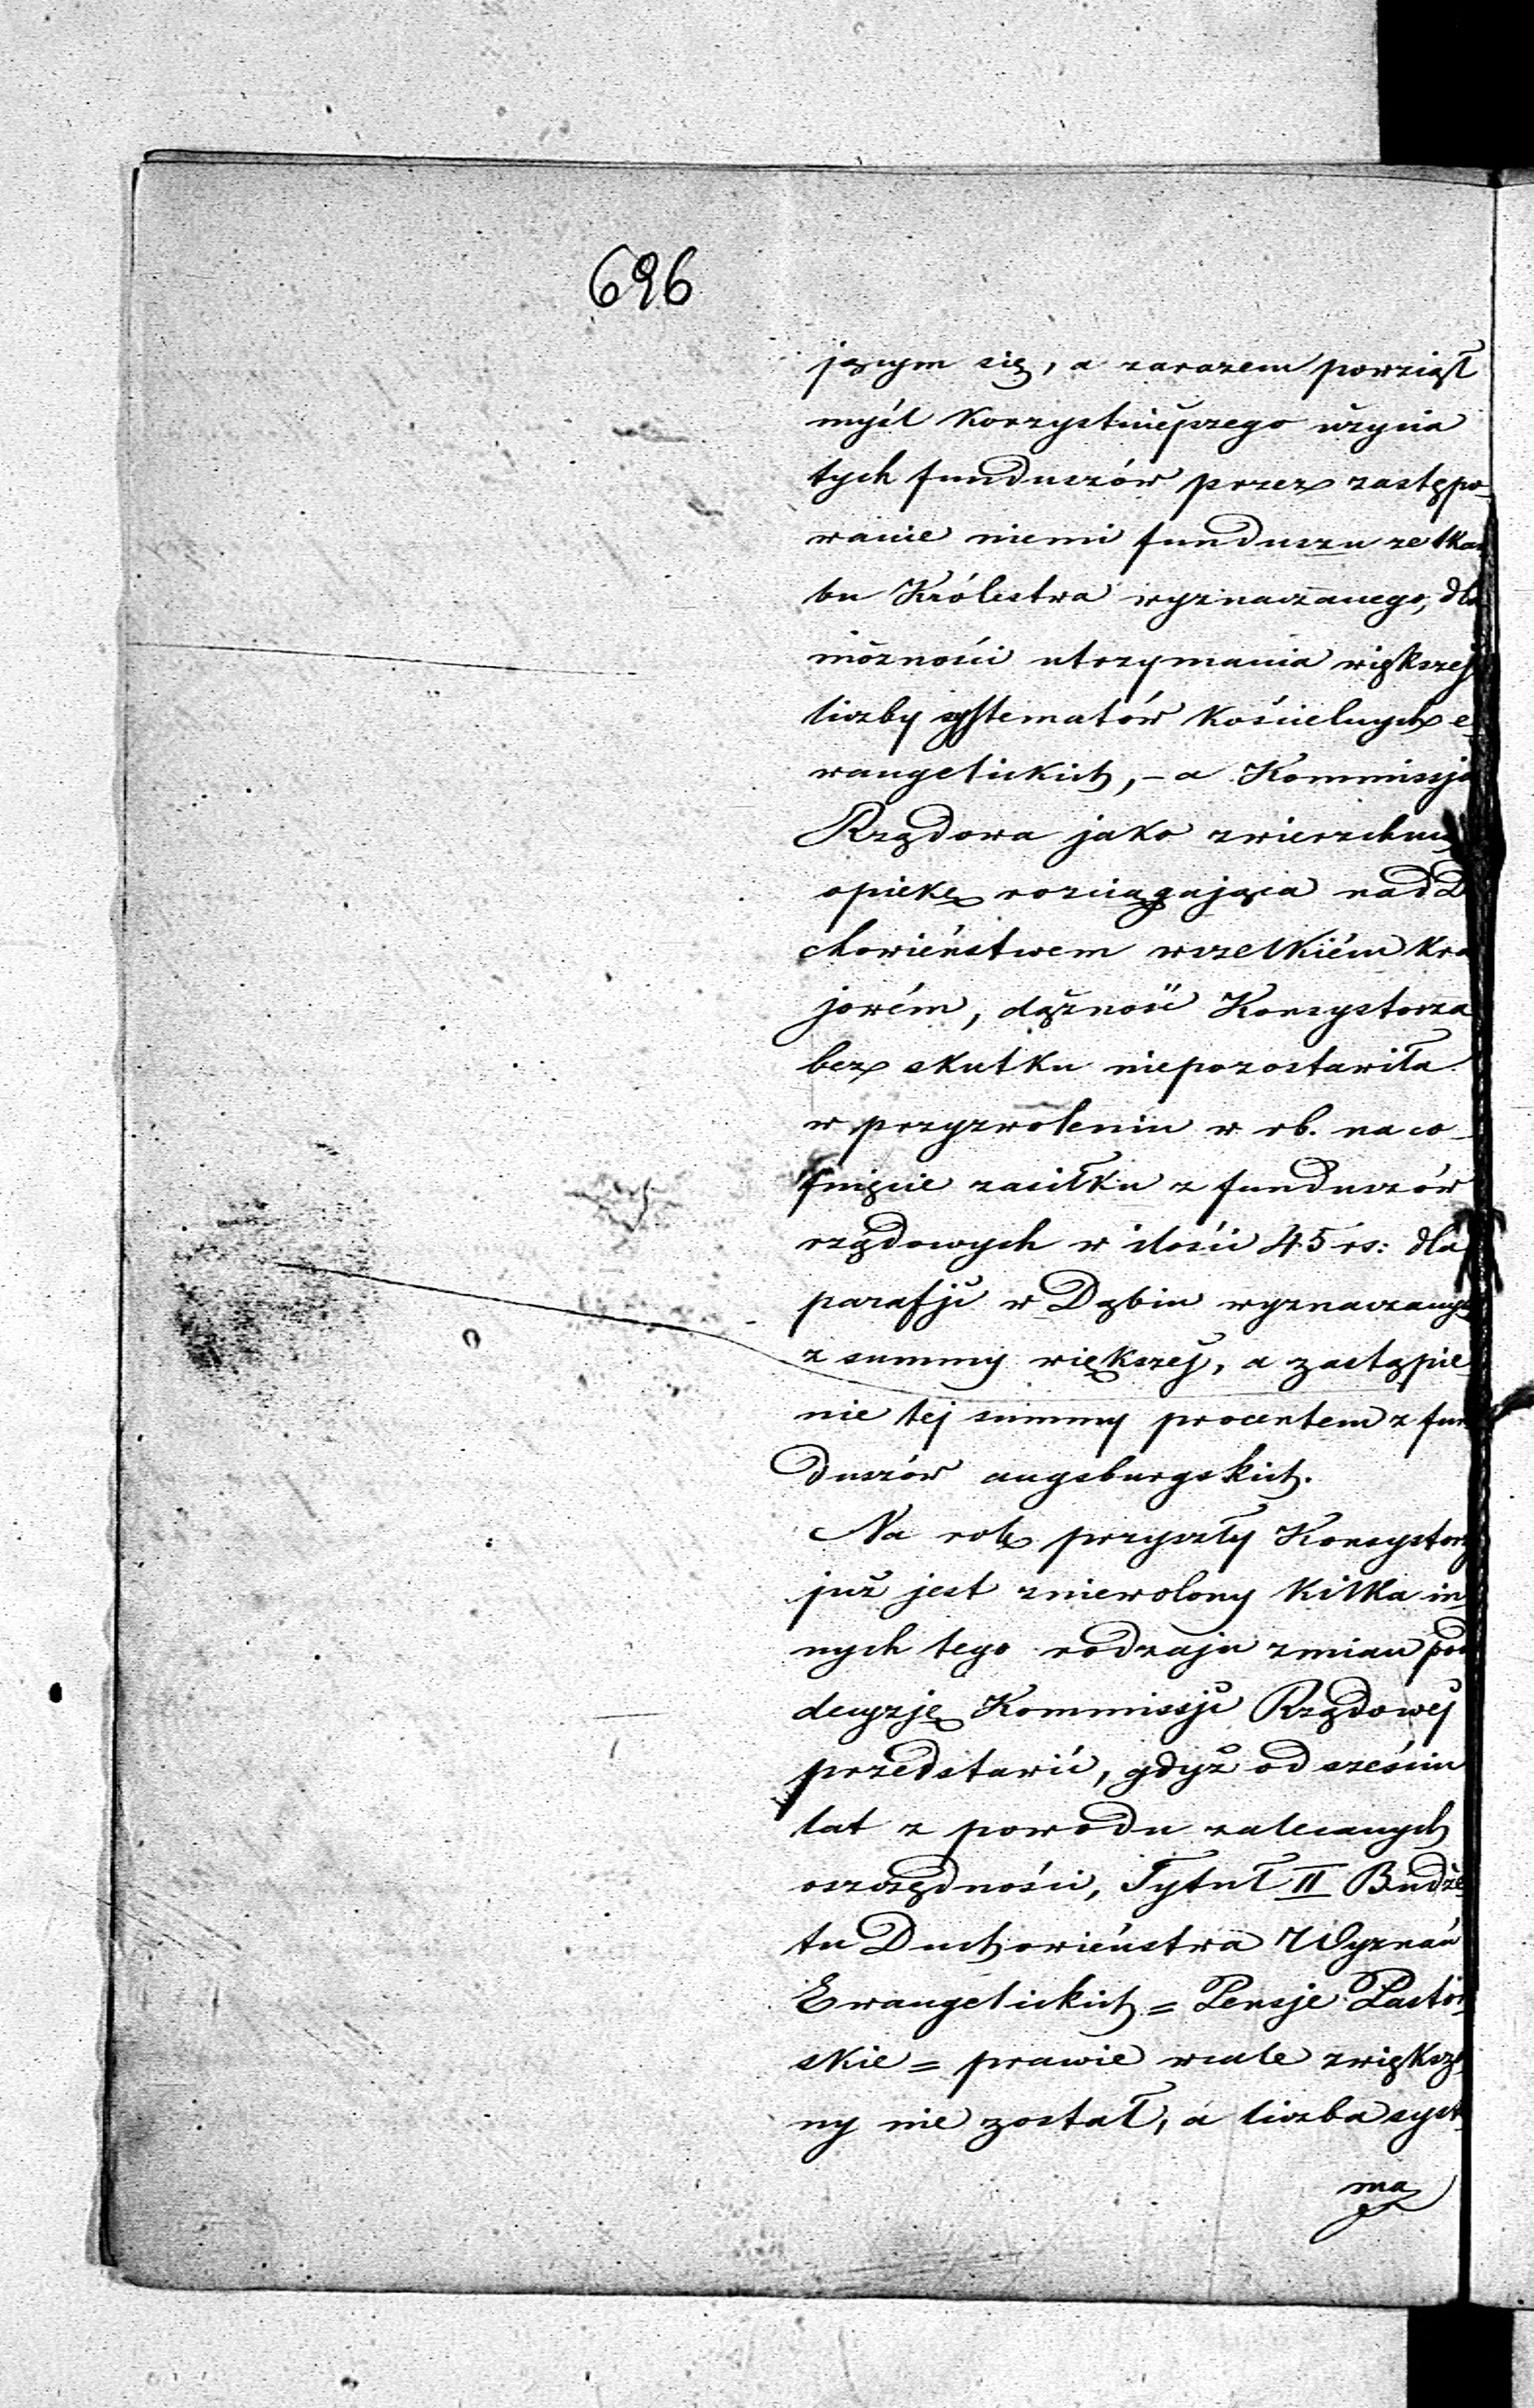 696
jącym się, a zarazem powziął
myśl korzystniejszego użycia
tych funduszów przez zastępo-
wanie niemi funduszu ze Skar
bu Królestwa wyznaczanego, dla
możności utrzymania większej
liczby systematów kościelnych e-
wangelickich, - a Kommissja
Rządowa jako zwierzchnią
opiekę rozciągająca nad Du
chowieństwem wszelkiém kra
jowém, dążność Konsystorza
bez skutku niepozostawiła
w przyzwoleniu w rb. na co-
fnięcie zasiłku z funduszów
rządowych w ilości 45 rs: dla
parafji w Dąbiu wyznaczanych
z summy większej, a zastąpie
nie tej summy procentem z fun
duszów augsburgskich.
Na rok przyszły Konsystorz
już jest zniewolony kilka in
nych tego rodzaju zmian pod
decyzję Kommissji Rządowej
przedstawić, gdyż od sześciu
lat z powodu zalecanych
oszczędności, Tytuł II Budże
tu Duchowieństwa Wyznań
Ewangelickich = Pensje Pastor
skie = prawie wcale zwiększo
ny nie został, a liczba syst
ma